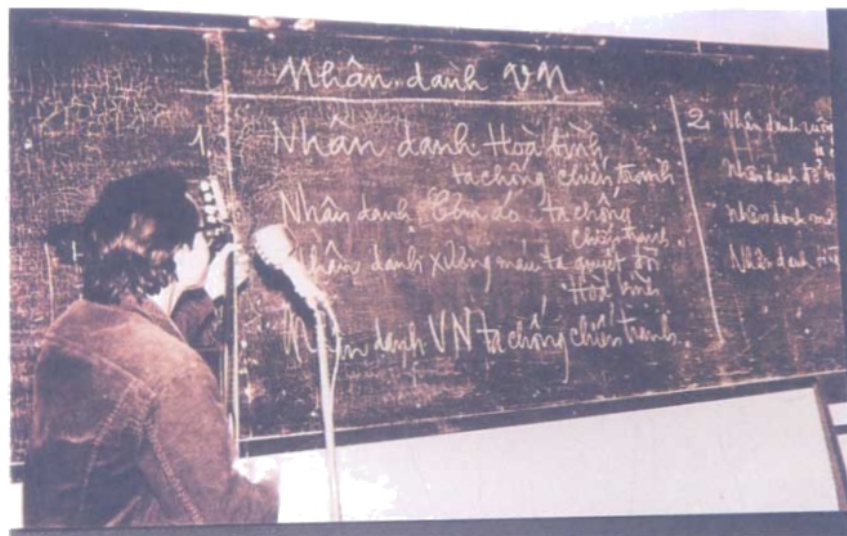 Nhân danh VN
1. Nhân danh Hoà bình
ta chống chiến tranh
Nhân danh Cơm áo ta chống
chiến tranh
Nhân danh xương máu ta quyết đòi
Hoà bình
Nhân danh VN ta chống chiến tranh
2. Nhân danh
Nhân danh
Nhân danh
Nhân danh